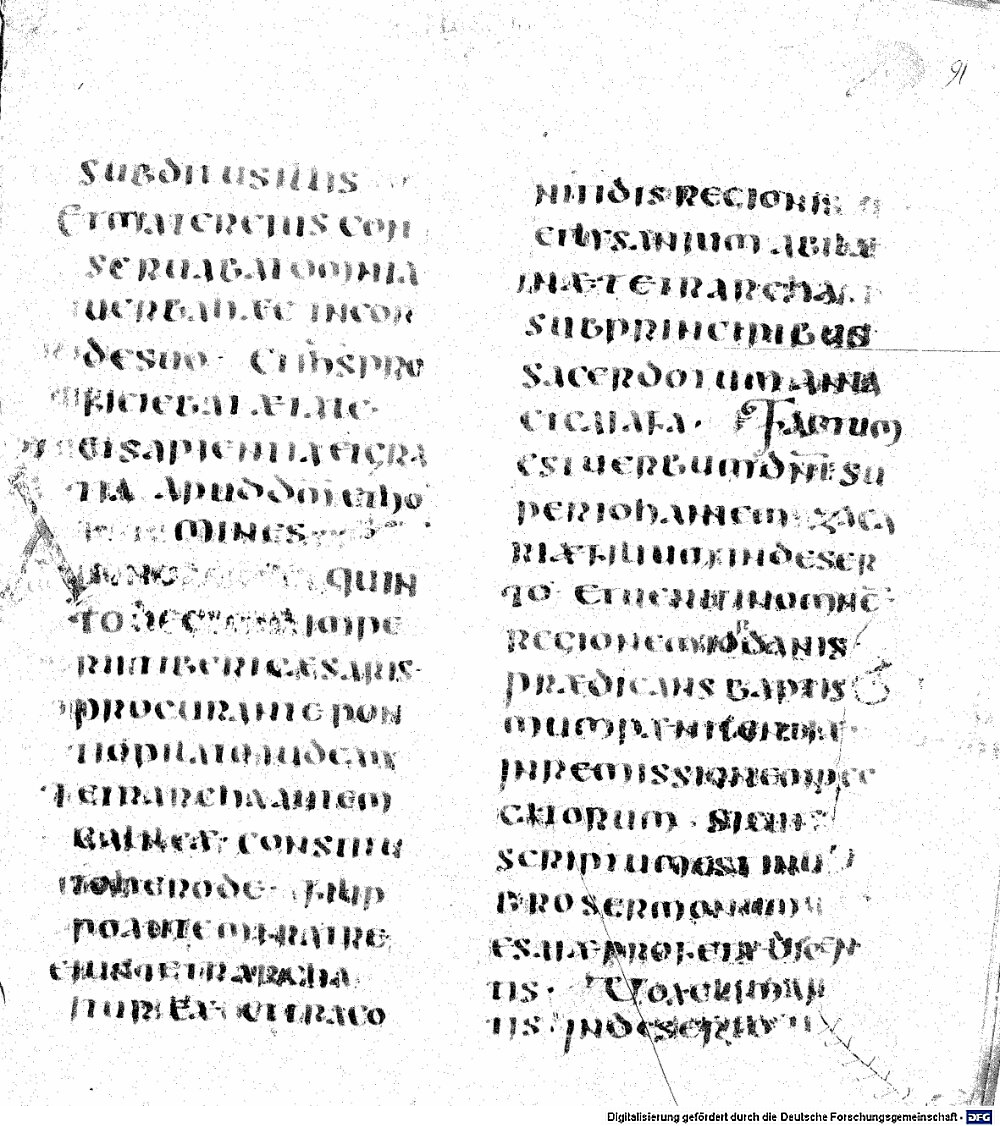 SUBDITUS ILLIS
ET MATER EIUS CON
SERUABAT OMNIA
UERBA HAEC IN COR
DE SUO · ET IHS PRO
FICIEBAT ÆTATE ·
ET SAPIENTIA ET GRA
TIA APUD DO ET HO
MINES
ANNO QUIN
TO DECIMO IMPE
RII TIBERII CÆSARIS ·
PROCURANTE PON
TIO PILATO IUDEAM
TETRARCHA AUTEM
GALILEÆ · CONSTITU
TO HERODE · FILIP
PO AUTEM FRATRE
EIUS TETRARCHA
ITUREÆ ET TRACO
NITIDIS REGIONIS
ET LYSANIUM ABILÆ
INÆ TETRARCHA
SUB PRINCIPIBUS
SACERDOTUM ANNA
ET CAIAFA · FACTUM
EST UERBUM DNI SU
PER IOHANNEM ZACA
RIÆ FILIUM IN DESER
TO ET UENIT IN OMNE
REGIONEM IORDANIS
PRÆDICANS BAPTIS
MUM PÆNITENTIÆ
IN REMISSIONEM PEC
CATORUM · SICUT
SCRIPTUM EST IN LI
BRO SERMONUM
ESAIÆ PROFETÆ DICEN
TIS · UOX CLAMAN
TIS · IN DESERTO
91
Digitalisierung gefördert durch die Deutsche Forschungsgemeinschaft - DFG